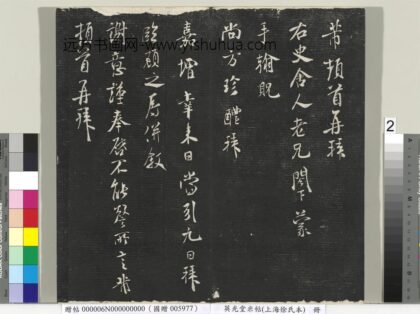 芾頓首再拜
右史舍人老兄閣下蒙
手翰貺
尚方珍醴拜
嘉增
辛未日當引元日拜
臨顧之辱併敘
謝意謹奉啓不能盡所言芾
頓首再拜
远方书画网-www.yishuhua.com
2
贈帖 000006N000000000 (國贈 005977)
英光堂米帖(上海徐氏本) 冊